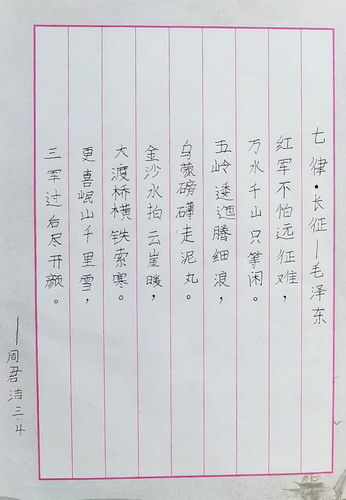 七律·长征—毛泽东
红军不怕远征难，
万水千山只等闲。
五岭逶迤腾细浪，
乌蒙磅礴走泥丸。
金沙水拍云崖暖，
大渡桥横铁索寒。
更喜岷山千里雪，
三军过后尽开颜。
—周君洁三.4